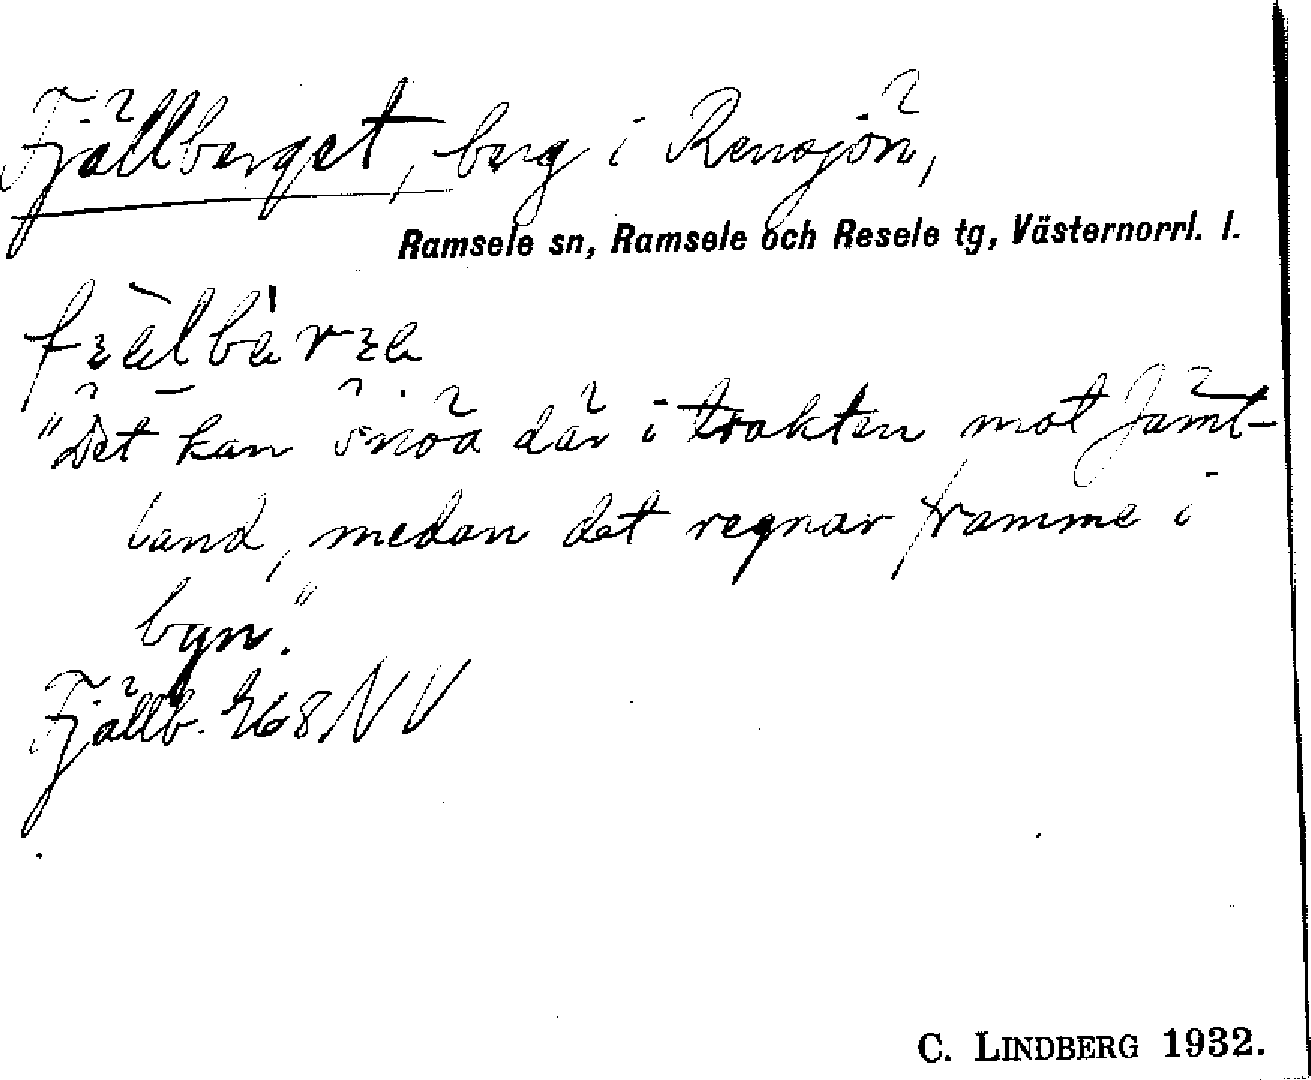 Fjällberget, berg i Rensjön,
Ramsele sn, Ramsele och Resele tg, Västernorrl. l.
"Det kan snöa där i trakten mot Jämt-
land, medan det regnar framme i
byn."
Fjällb. 268 NV
C. LINDBERG 1932.